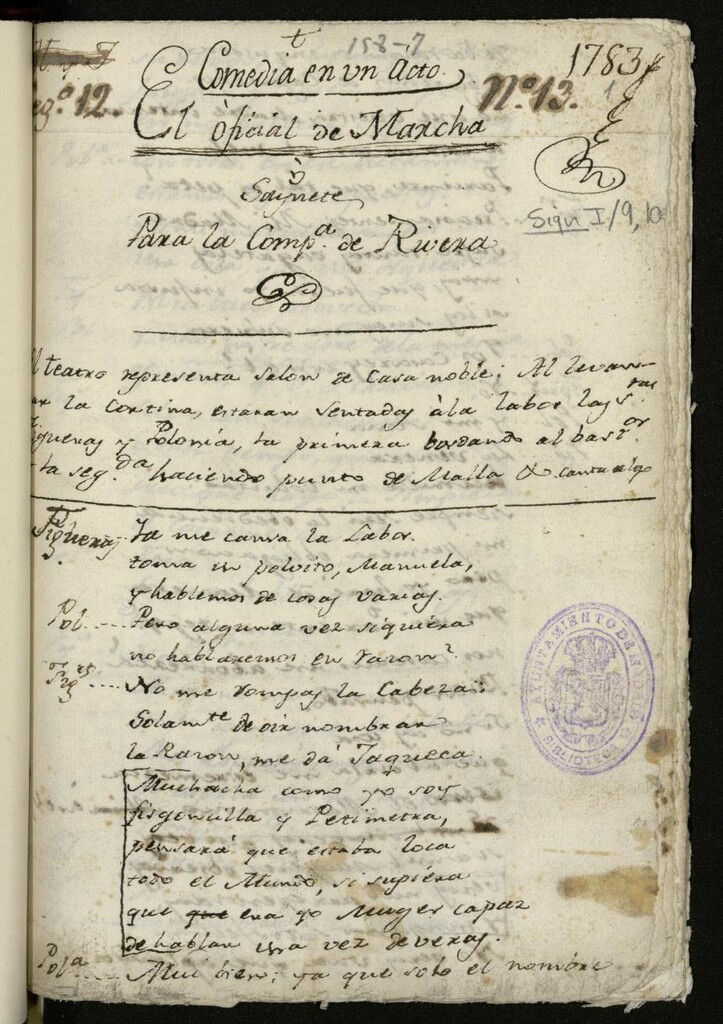 158-7
1783
Comedia en un Acto.
Leg.º 12.
Nº 13.
1
El oficial de Marcha
ò
Saynete
Para la Compª. de Rivera
Sign I/9, 10
El teatro representa salon de Casa noble; Al levan-
tar la Cortina, estaran sentadas à la labor las S.ras
Figueras y Polonia, la primera bordando al bastor
y la seg.da haciendo punto de Malla & canta algo
Figueras Ya me cansa la Labor.
toma un polvito, Manuela,
y hablemos de cosas varias.
Pol. Pero alguna vez siquiera
no hablaremos en razon?
Fig.ras No me rompas la Cabeza:
Solam.te de oir nombrar
la Razon, me dá Jaqueca
Muchacha como yo soy
fisgoncilla y Petimetra,
pensará que estaba loca
todo el Mundo, si supiera
que que era yo Muger capaz
de hablar una vez de veras.
Pol.a Mui bien; ya que solo el nombre
AYUNTAMIENTO DE MADRID
BIBLIOTECA